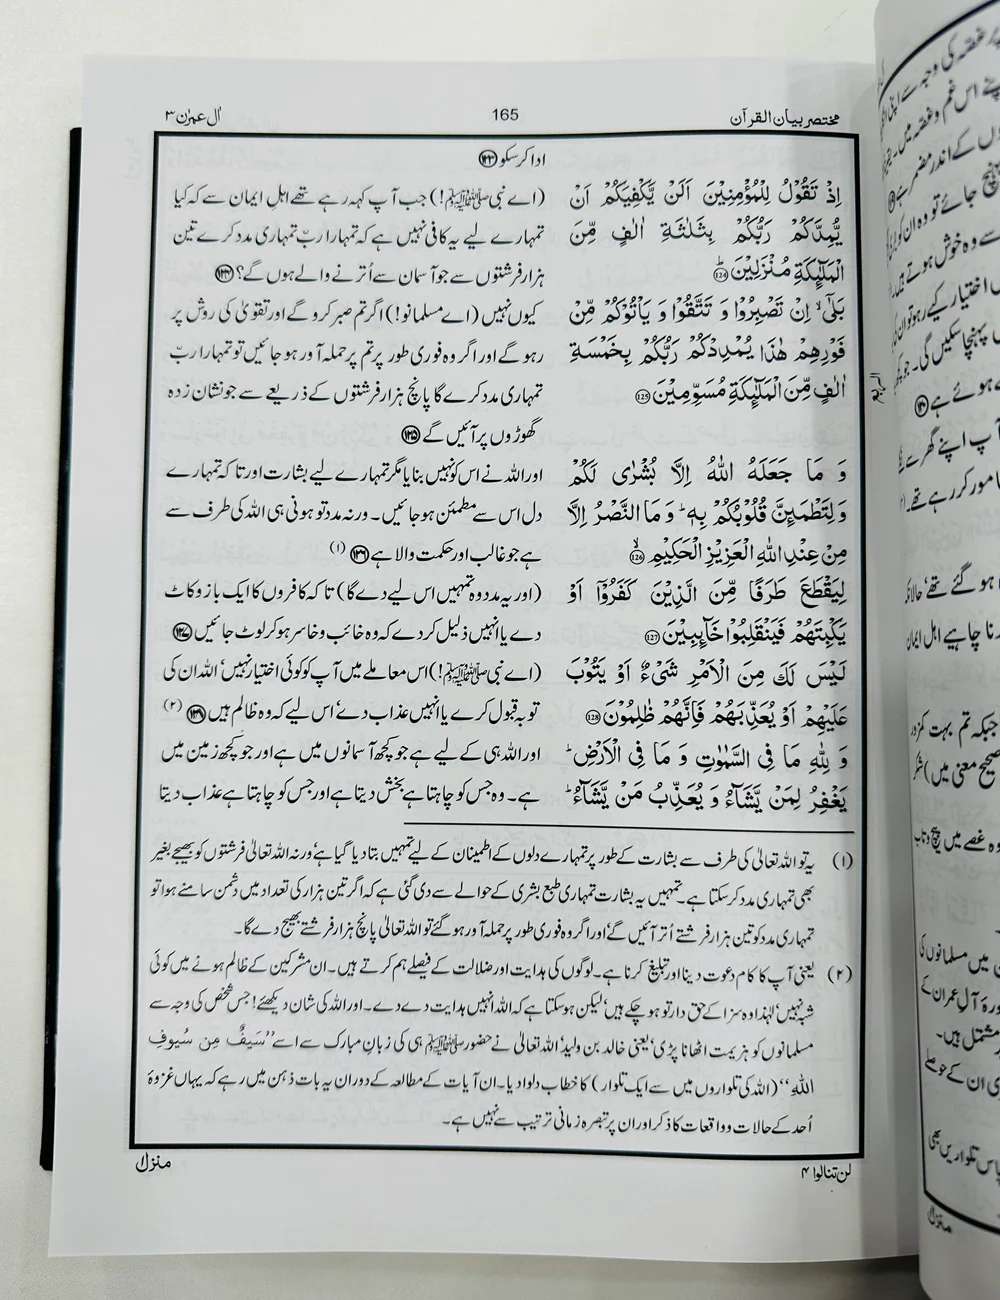 مختصر بیان القرآن
165
اٰل عمرٰن ۳
ادا کر سکو ۱۲۳
اِذْ تَقُوْلُ لِلْمُؤْمِنِیْنَ اَلَنْ یَّكْفِیَكُمْ اَنْ
یُّمِدَّكُمْ رَبُّكُمْ بِثَلٰثَةِ اٰلٰفٍ مِّنَ
الْمَلٰٓىِٕكَةِ مُنْزَلِیْنَؕ 124
(اے نبی ﷺ!) جب آپ کہہ رہے تھے اہلِ ایمان سے کہ کیا
تمہارے لیے یہ کافی نہیں ہے کہ تمہارا ربّ تمہاری مدد کرے تین
ہزار فرشتوں سے جو آسمان سے اُترنے والے ہوں گے؟ ۱۲۴
بَلٰۤیۙ اِنْ تَصْبِرُوْا وَ تَتَّقُوْا وَ یَاْتُوْكُمْ مِّنْ
فَوْرِهِمْ هٰذَا یُمْدِدْكُمْ رَبُّكُمْ بِخَمْسَةِ
اٰلٰفٍ مِّنَ الْمَلٰٓىِٕكَةِ مُسَوِّمِیْنَ 125
کیوں نہیں (اے مسلمانو!) اگر تم صبر کرو گے اور تقویٰ کی روش پر
رہو گے اور اگر وہ فوری طور پر تم پر حملہ آور ہو جائیں تو تمہارا ربّ
تمہاری مدد کرے گا پانچ ہزار فرشتوں کے ذریعے سے جو نشان زدہ
گھوڑوں پر آئیں گے ۱۲۵
وَ مَا جَعَلَهُ اللّٰهُ اِلَّا بُشْرٰی لَكُمْ
وَ لِتَطْمَىِٕنَّ قُلُوْبُكُمْ بِهٖؕ وَ مَا النَّصْرُ اِلَّا
مِنْ عِنْدِ اللّٰهِ الْعَزِیْزِ الْحَكِیْمِۙ 126
اور اللہ نے اس کو نہیں بنایا مگر تمہارے لیے بشارت اور تاکہ تمہارے
دل اس سے مطمئن ہو جائیں۔ ورنہ مدد تو ہونی ہی اللہ کی طرف سے
ہے جو غالب اور حکمت والا ہے ۱۲۶ (۱)
لِیَقْطَعَ طَرَفًا مِّنَ الَّذِیْنَ كَفَرُوْۤا اَوْ
یَكْبِتَهُمْ فَیَنْقَلِبُوْا خَآىِٕبِیْنَ 127
(اور یہ مدد وہ تمہیں اس لیے دے گا) تاکہ کافروں کا ایک بازو کاٹ
دے یا انہیں ذلیل کر دے کہ وہ خائب و خاسر ہو کر لوٹ جائیں ۱۲۷
لَیْسَ لَكَ مِنَ الْاَمْرِ شَیْءٌ اَوْ یَتُوْبَ
عَلَیْهِمْ اَوْ یُعَذِّبَهُمْ فَاِنَّهُمْ ظٰلِمُوْنَ 128
(اے نبی ﷺ!) اس معاملے میں آپ کو کوئی اختیار نہیں‘ اللہ ان کی
توبہ قبول کرے یا انہیں عذاب دے‘ اس لیے کہ وہ ظالم ہیں ۱۲۸ (۲)
وَ لِلّٰهِ مَا فِی السَّمٰوٰتِ وَ مَا فِی الْاَرْضِؕ
یَغْفِرُ لِمَنْ یَّشَآءُ وَ یُعَذِّبُ مَنْ یَّشَآءُؕ
اور اللہ ہی کے لیے ہے جو کچھ آسمانوں میں ہے اور جو کچھ زمین میں
ہے۔ وہ جس کو چاہتا ہے بخش دیتا ہے اور جس کو چاہتا ہے عذاب دیتا
(۱) یہ تو اللہ تعالیٰ کی طرف سے بشارت کے طور پر تمہارے دلوں کے اطمینان کے لیے تمہیں بتا دیا گیا ہے‘ ورنہ اللہ تعالیٰ فرشتوں کو بھیجے بغیر
بھی تمہاری مدد کر سکتا ہے۔ تمہیں یہ بشارت تمہاری طبع بشری کے حوالے سے دی گئی ہے کہ اگر تین ہزار کی تعداد میں دشمن سامنے ہوا تو
تمہاری مدد کو تین ہزار فرشتے اُتر آئیں گے‘ اور اگر وہ فوری طور پر حملہ آور ہو گئے تو اللہ تعالیٰ پانچ ہزار فرشتے بھیج دے گا۔
(۲) یعنی آپ کا کام دعوت دینا اور تبلیغ کرنا ہے۔ لوگوں کی ہدایت اور ضلالت کے فیصلے ہم کرتے ہیں۔ ان مشرکین کے ظالم ہونے میں کوئی
شبہ نہیں‘ لہٰذا وہ سزا کے حق دار تو ہو چکے ہیں‘ لیکن ہو سکتا ہے کہ اللہ انہیں ہدایت دے دے۔ اور اللہ کی شان دیکھئے! جس شخص کی وجہ سے
مسلمانوں کو ہزیمت اٹھانا پڑی‘ یعنی خالد بن ولید‘ اللہ تعالیٰ نے حضور ﷺ ہی کی زبانِ مبارک سے اسے ’’سَیفٌ مِن سُیوفِ
اللّٰہِ‘‘ (اللہ کی تلواروں میں سے ایک تلوار) کا خطاب دلوا دیا۔ ان آیات کے مطالعہ کے دوران یہ بات ذہن میں رہے کہ یہاں غزوۂ
اُحد کے حالات و واقعات کا ذکر اور ان پر تبصرہ زمانی ترتیب سے نہیں ہے۔
لن تنالوا ۴
منزل ۱